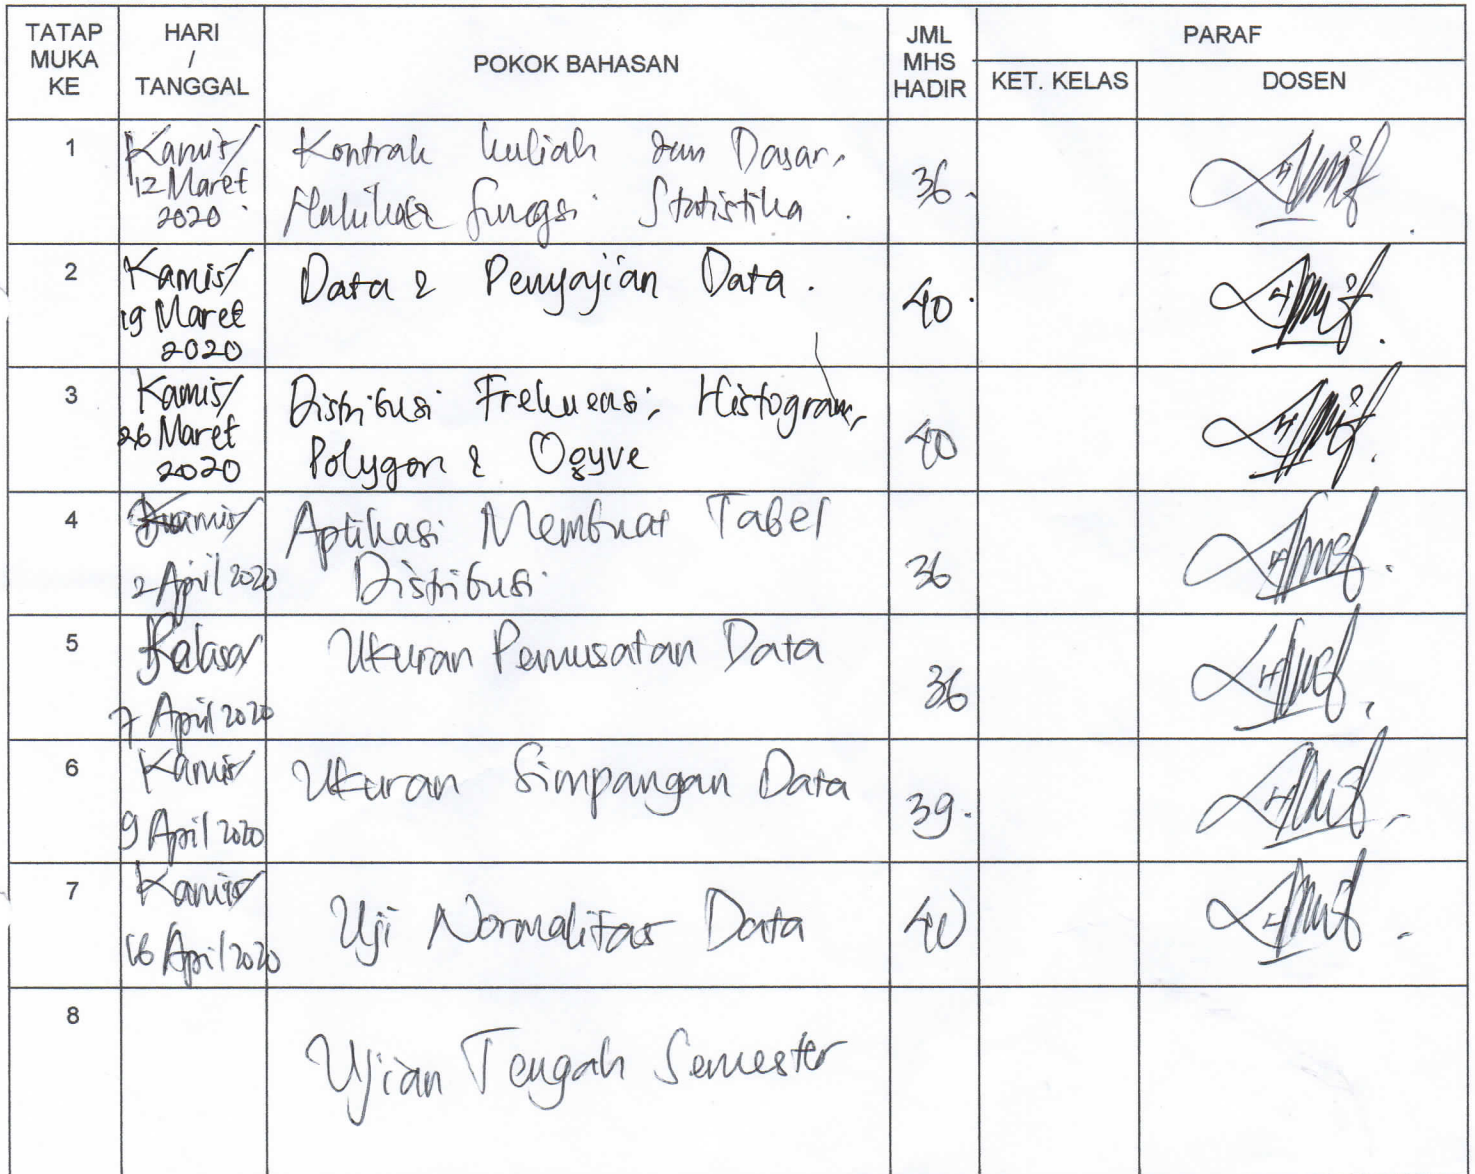 TATAP MUKA KE
HARI / TANGGAL
POKOK BAHASAN
JML MHS HADIR
PARAF
KET. KELAS
DOSEN
1
Kamis/
12 Maret
2020
Kontrak kuliah dan Dasar,
Fungsi Statistika.
36
2
Kamis/
19 Maret
2020
Data & Penyajian Data.
40
3
Kamis/
26 Maret
2020
Distribusi Frekuensi, Histogram,
Polygon & Ogyve
40
4
Kamis/
2 April 2020
Aplikasi Membuat Tabel
Distribusi
36
5
Selasa/
7 April 2020
Ukuran Pemusatan Data
36
6
Kamis/
9 April 2020
Ukuran Simpangan Data
39
7
Kamis/
16 April 2020
Uji Normalitas Data
40
8
Ujian Tengah Semester